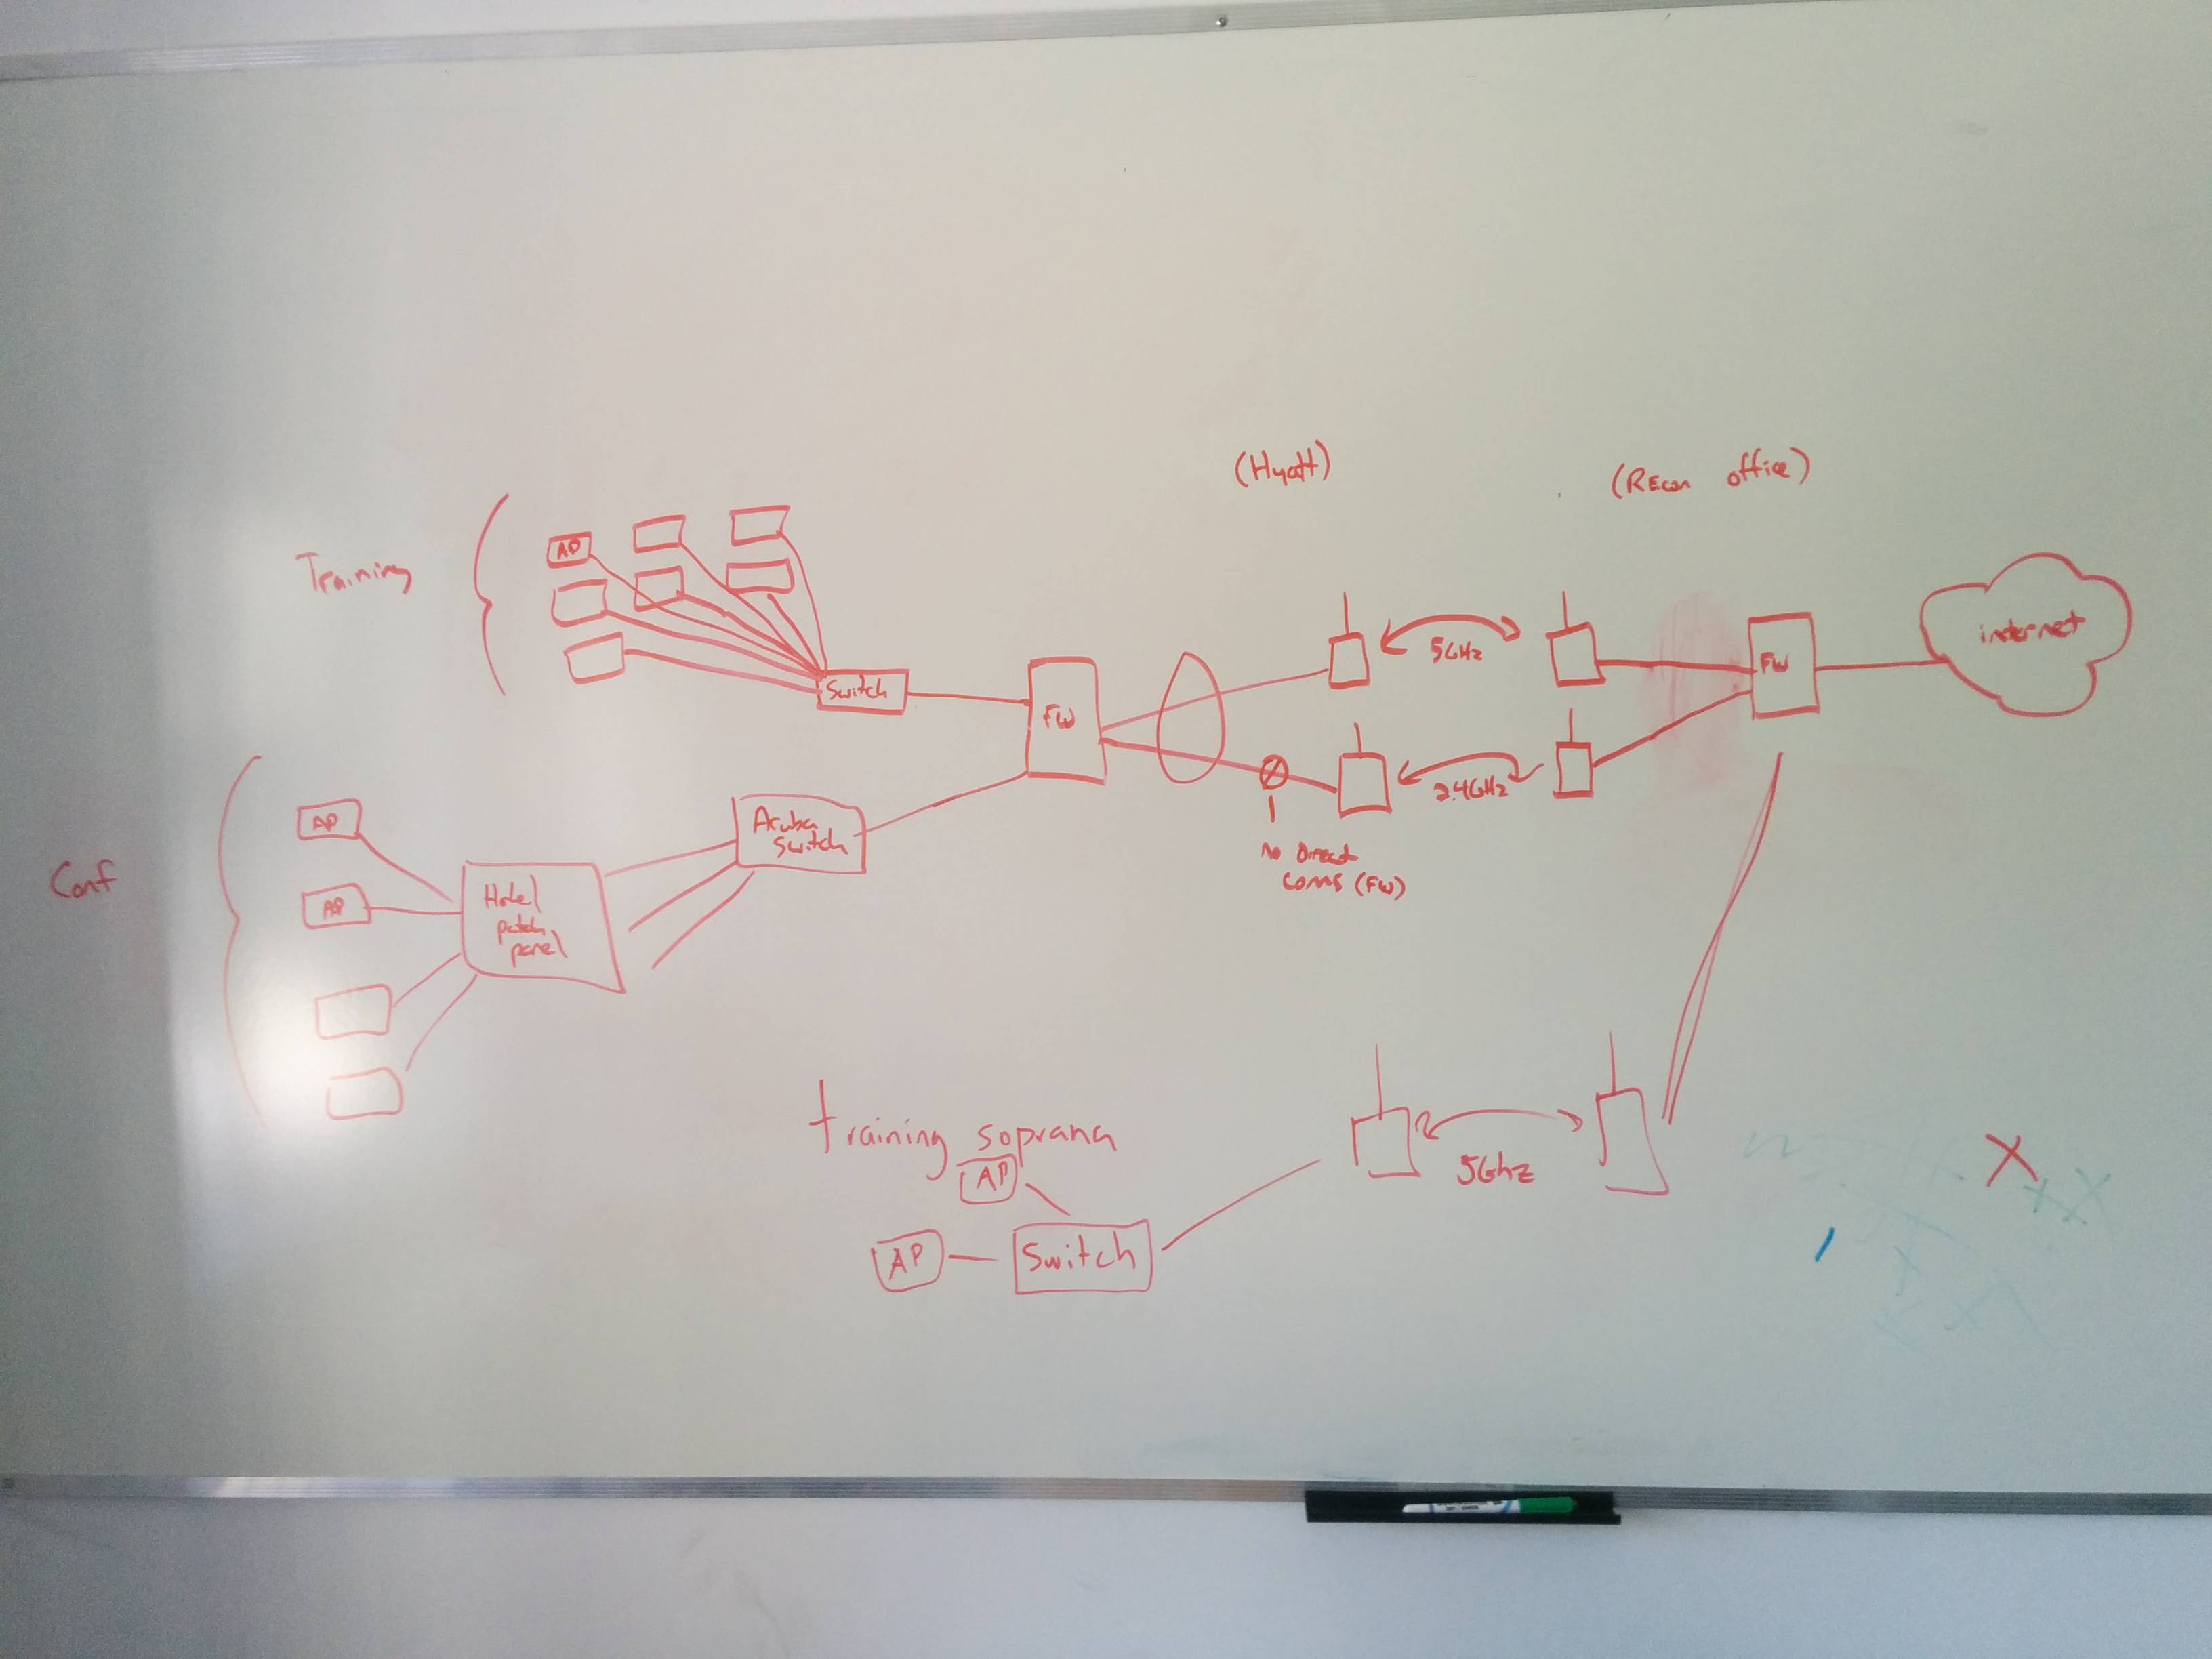 (Hyatt)
(REcon office)
Training
AP
Switch
FW
5GHz
FW
internet
2.4GHz
No Direct
coms (FW)
Conf
AP
AP
Hotel
patch
panel
Aruba
Switch
training soprana
AP
AP
Switch
5Ghz
X